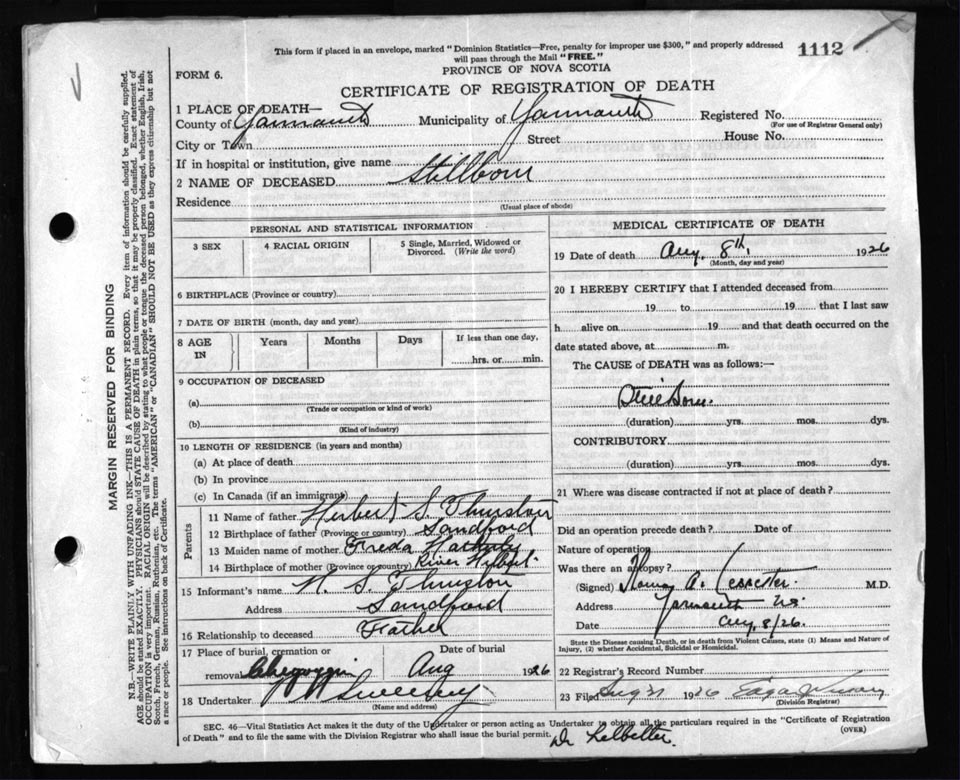 This form if placed in an envelope, marked "Dominion Statistics—Free, penalty for improper use $300," and properly addressed
will pass through the Mail "FREE."
1112
PROVINCE OF NOVA SCOTIA
FORM 6.
CERTIFICATE OF REGISTRATION OF DEATH
1 PLACE OF DEATH—
County of Yarmouth Municipality of Yarmouth Registered No.
(For use of Registrar General only)
City or Town Street House No.
If in hospital or institution, give name
2 NAME OF DECEASED Stillborn
Residence
(Usual place of abode)
PERSONAL AND STATISTICAL INFORMATION
3 SEX 4 RACIAL ORIGIN 5 Single, Married, Widowed or
Divorced. (Write the word)
6 BIRTHPLACE (Province or country)
7 DATE OF BIRTH (month, day and year)
8 AGE IN Years Months Days If less than one day,
hrs. or min.
9 OCCUPATION OF DECEASED
(a)
(Trade or occupation or kind of work)
(b)
(Kind of industry)
10 LENGTH OF RESIDENCE (in years and months)
(a) At place of death
(b) In province
(c) In Canada (if an immigrant)
Parents
11 Name of father Herbert S. Thurston
12 Birthplace of father (Province or country) Sandford
13 Maiden name of mother Freda
14 Birthplace of mother (Province or country) River Hebert
15 Informant's name H. S. Thurston
Address Sandford
16 Relationship to deceased Father
17 Place of burial, cremation or Date of burial
removal Chegoggin Aug 1926
18 Undertaker Sweeney
(Name and address)
MEDICAL CERTIFICATE OF DEATH
19 Date of death Aug. 8th, 1926
(Month, day and year)
20 I HEREBY CERTIFY that I attended deceased from
19 to 19 that I last saw
h alive on 19 and that death occurred on
date stated above, at m.
The CAUSE of DEATH was as follows:—
Still Born.
(duration) yrs. mos. dys.
CONTRIBUTORY
(duration) yrs. mos. dys.
21 Where was disease contracted if not at place of death?
Did an operation precede death? Date of
Nature of operation
Was there an autopsy?
(Signed) A. M.D.
Address Yarmouth NS
Date Aug. 8/26.
State the Disease causing Death, or in death from Violent Causes, state (1) Means and Nature of
Injury, (2) whether Accidental, Suicidal or Homicidal.
22 Registrar's Record Number
23 Filed Aug 31 1926 Edgar
(Division Registrar)
SEC. 46—Vital Statistics Act makes it the duty of the Undertaker or person acting as Undertaker to obtain all the particulars required in the "Certificate of Registration
of Death" and to file the same with the Division Registrar who shall issue the burial permit. (OVER)
Dr
MARGIN RESERVED FOR BINDING
N.B.—WRITE PLAINLY WITH UNFADING INK—THIS IS A PERMANENT RECORD. Every item of information should be carefully supplied.
AGE should be stated EXACTLY. PHYSICIANS should STATE CAUSE OF DEATH in plain terms, so that it may be properly classified. Exact statement of
OCCUPATION is very important. RACIAL ORIGIN will be described by stating to what people or tongue the deceased person belonged, whether English, Irish,
Scotch, French, German, Russian, Ruthenian, etc. The terms "AMERICAN" or "CANADIAN" SHOULD NOT BE USED as they express citizenship but not
a race or people. See instructions on back of Certificate.